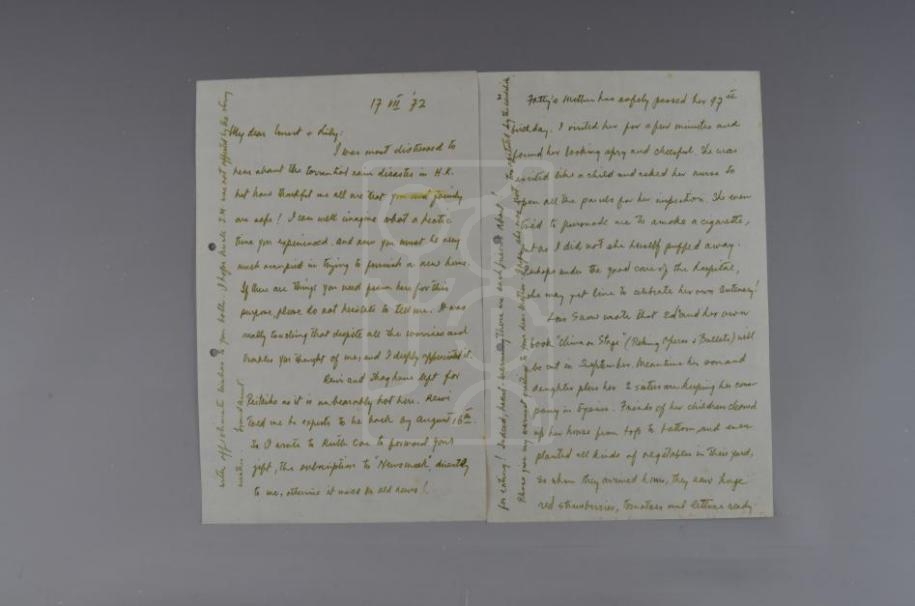 17 VII '72
My dear Ernest + Lily:
I was most distressed to
hear about the torrential rain disaster in H.K.
but how thankful we all are that you and family
are safe! I can well imagine what a hectic
time you experienced. and now you must be very
much occupied in trying to furnish a new home.
If there are things you need from here for this
purpose, please do not hesitate to tell me. It was
really touching that despite all the worries and
troubles you thought of me, and I deeply appreciated it.
Rewi and left for
Peitaiho as it is unbearably hot here. Rewi
told me he expects to be back by August 16th
So I wrote to Ruth Coe to forward your
gift, the subscription to "Newsweek", directly
to me, otherwise it will be old news!
with affectionate wishes to you both. I hope was not affected by the
Fatty's Mother has safely passed her 97th
birthday. I visited her for a few minutes and
found her looking spry and cheerful. She was
excited like a child and asked her nurse to
open all the parcels for her inspection. She even
tried to persuade me to smoke a cigarette,
but as I did not she herself puffed away.
Perhaps under the good care of the hospital,
she may yet live to celebrate her own centenary!
Lois Snow wrote that Ed's and her own
book "China on Stage" (Peking Operas & Ballets) will
be out in September. Meantime her son and
daughter plus her 2 sisters are keeping her com-
pany in Eysins. Friends of her children cleaned
up her house from top to bottom, and even
planted all kinds of vegetables in their yard,
so when they arrived home, they saw huge
red strawberries, tomatoes and lettuce ready
for eating! Indeed,
Please give my warmest greetings to your dear